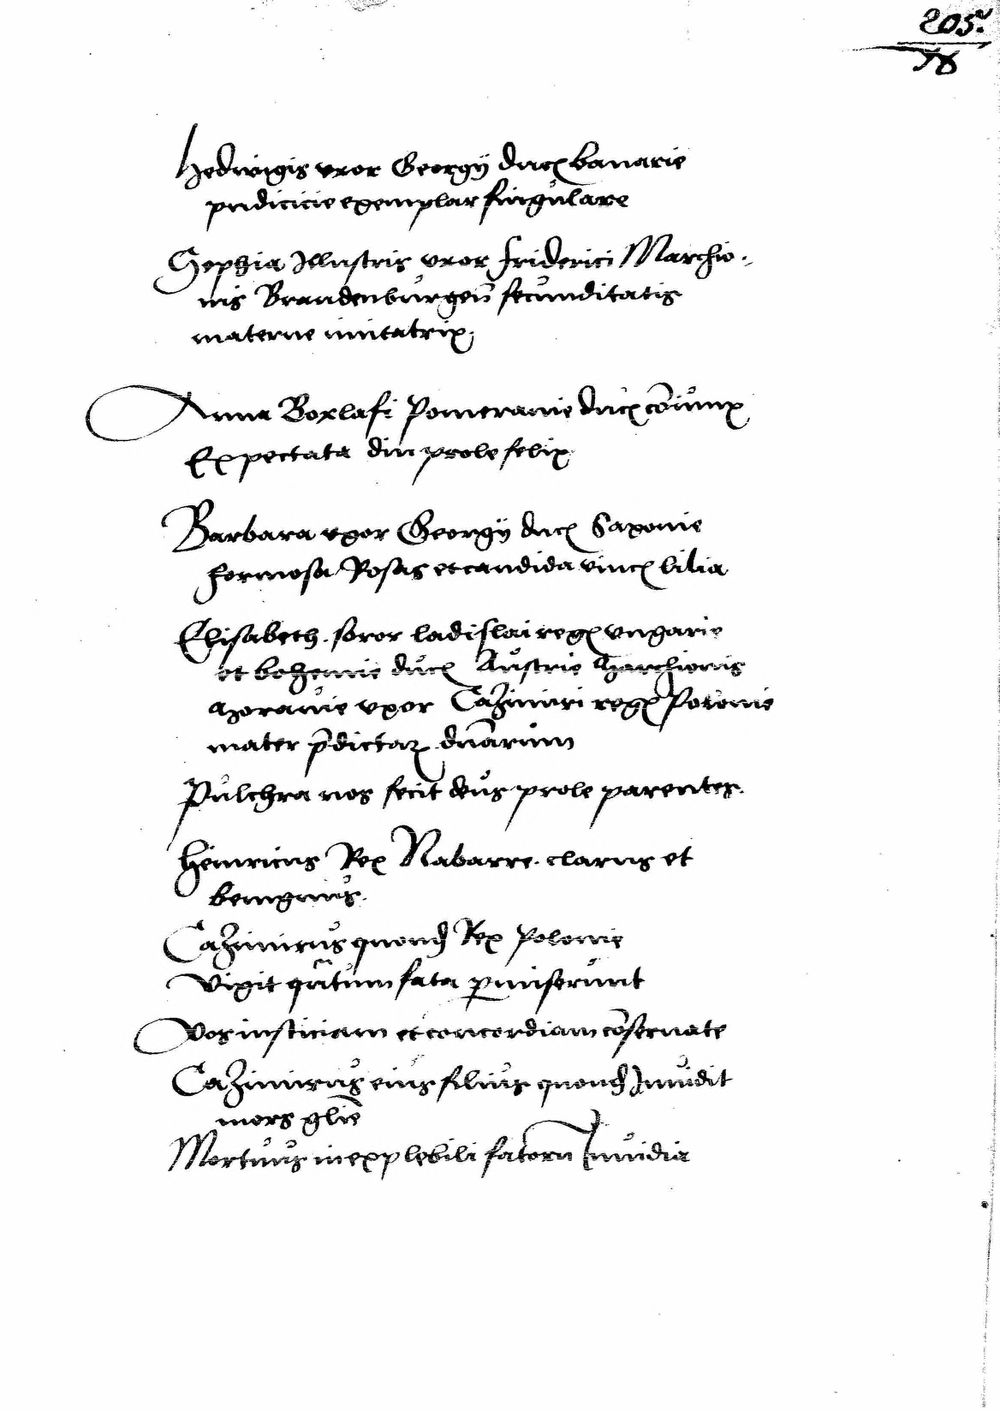 205.
78
Hedwigis uxor Georgij ducis bavarie
pudicicie exemplar singulare
Sophia Illustris uxor Friderici Marchio-
nis Brandenburgen̄ fecunditatis
materne imitatrix
Anna Boxlasi Pomeranie ducis cōiunx
Expectata diu prole felix
Barbara uxor Georgij ducis Saxonie
formosa Rosas et candida vincis lilia
Elisabeth soror ladislai regis ungarie
et bohemie ducis Austrie Marchionis
Moravie uxor Cazimiri regis Polonie
mater p̄dictaꝝ dn̄arum
Pulchra nos fecit deus prole parentes.
Heinricus Rex Nabarre clarus et
benignus.
Cazimirus quond̄ Rex Polonie
Vixit qn̄tum fata ꝑmiserunt
Vos iusticiam et concordiam cōservate
Cazimirus eius filius quond̄ Invidit
mors glīe
Mortuus inexplebili fatoru̅ Invidia